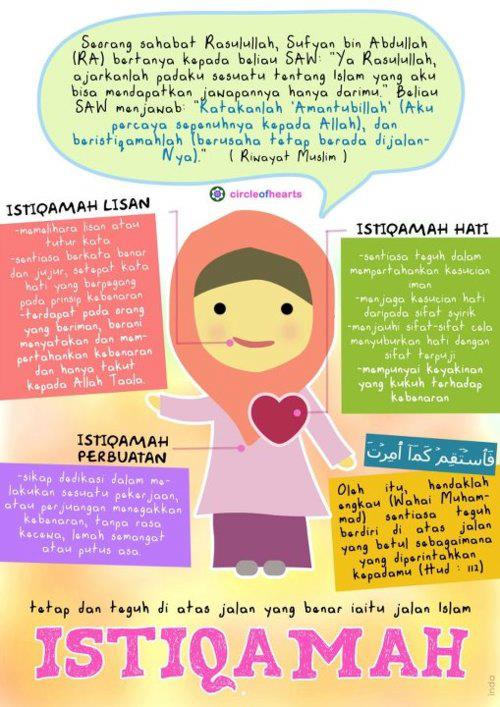 Seorang sahabat Rasulullah, Sufyan bin Abdullah
(RA) bertanya kepada beliau SAW: "Ya Rasulullah,
ajarkanlah padaku sesuatu tentang Islam yang aku
bisa mendapatkan jawapannya hanya darimu." Beliau
SAW menjawab: "Katakanlah 'Amantubillah' (Aku
percaya sepenuhnya kepada Allah), dan
beristiqamahlah (berusaha tetap berada dijalan-
Nya)." ( Riwayat Muslim )
circleofhearts
ISTIQAMAH LISAN
-memelihara lisan atau
tutur kata
-sentiasa berkata benar
dan jujur, setepat kata
hati yang berpegang
pada prinsip kebenaran
-terdapat pada orang
yang beriman, berani
menyatakan dan mem-
pertahankan kebenaran
dan hanya takut
kepada Allah Taala.
ISTIQAMAH HATI
-sentiasa teguh dalam
mempertahankan kesucian
iman
-menjaga kesucian hati
daripada sifat syirik
-menjauhi sifat-sifat cela
menyuburkan hati dengan
sifat terpuji
-mempunyai keyakinan
yang kukuh terhadap
kebenaran
ISTIQAMAH
PERBUATAN
-sikap dedikasi dalam me-
lakukan sesuatu pekerjaan,
atau perjuangan menegakkan
kebenaran, tanpa rasa
kecewa, lemah semangat
atau putus asa.
فَاسْتَقِمْ كَمَا أُمِرْتَ
Oleh itu, hendaklah
engkau (Wahai Muham-
mad) sentiasa teguh
berdiri di atas jalan
yang betul sebagaimana
yang diperintahkan
kepadamu (Hud : 112)
tetap dan teguh di atas jalan yang benar iaitu jalan Islam
ISTIQAMAH
inda